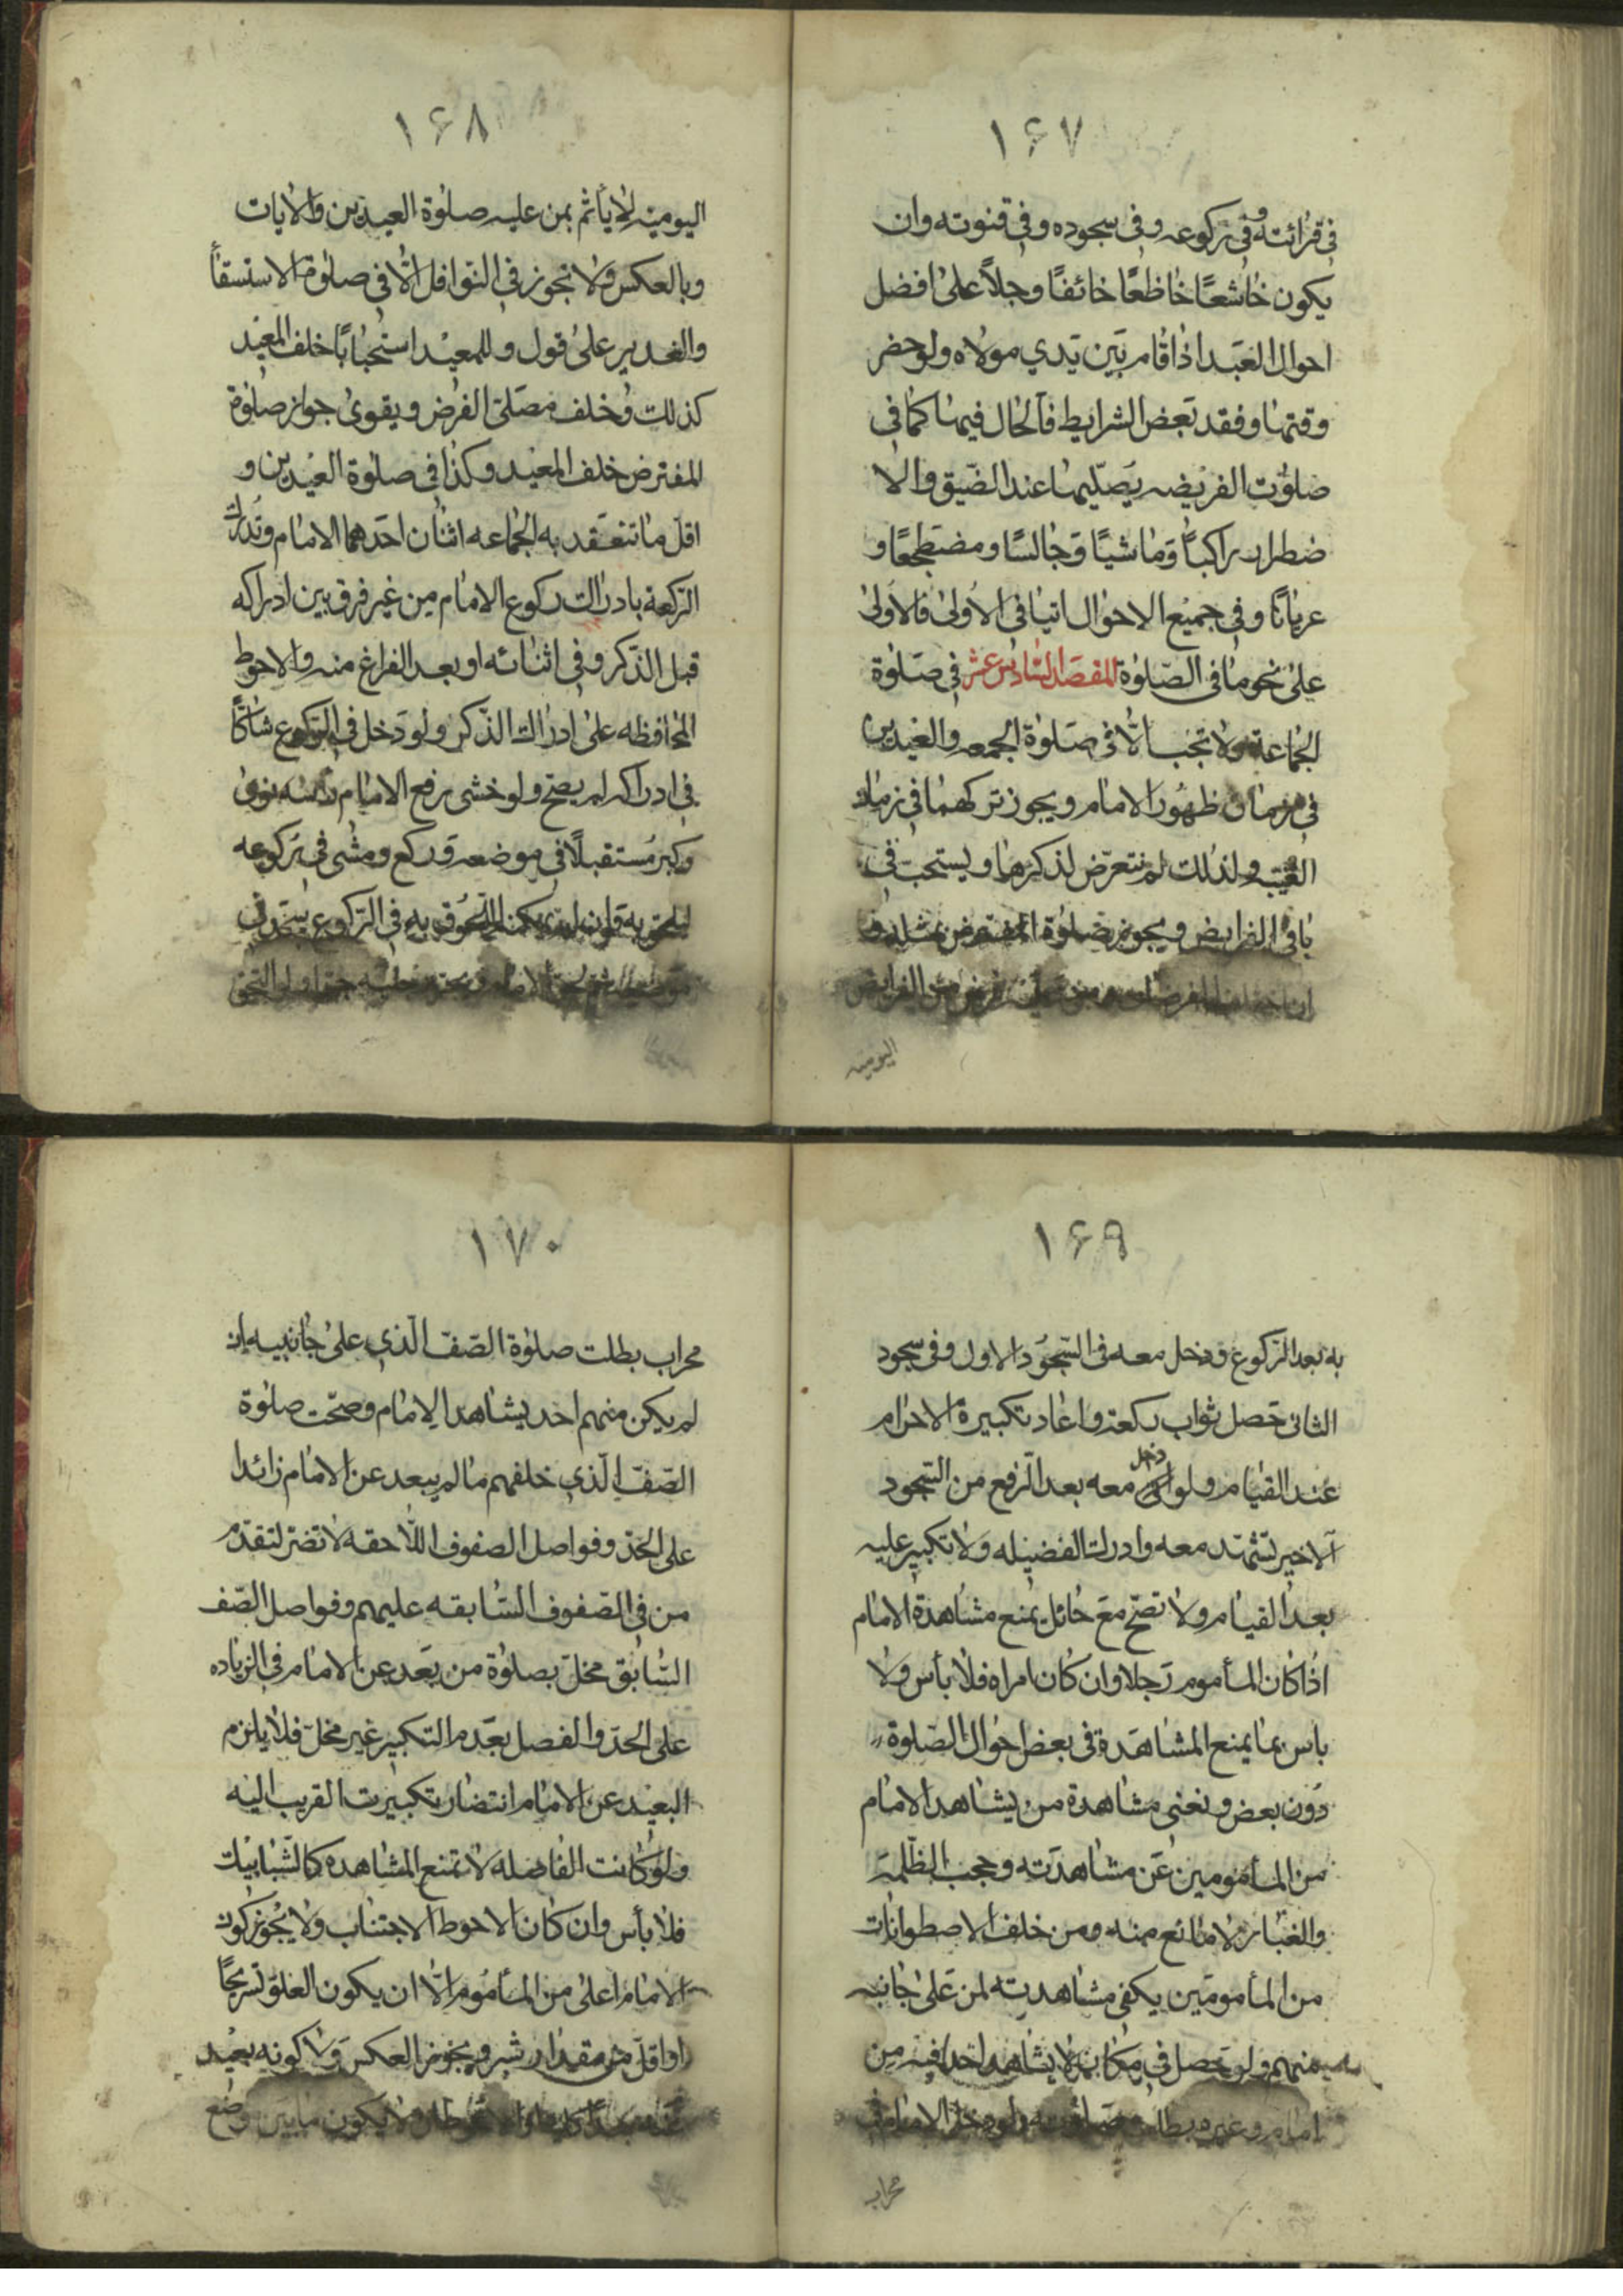 ١۶٧
فی قرائته وفی رکوعه وفی سجوده وفی قنوته وان
یکون خاشعًا خاظعًا خائفًا وجلاً علی افضل
احوال العبد اذا قام بین یدي مولاه ولو حضر
وقتها وفقد بعض الشرایط فالحال فیها کما فی
صلوت الفریضه یصلیها عند الضیق والا
ضطرار راکبًا وماشیًا وجالسًا ومضطجعًا و
عریانًا وفی جمیع الاحوال اتیا فی الاولی فالاولی
علی نحو ما فی الصلوة المقصد السادس عشر فی صلوة
الجماعة ولا تجب الا فی صلوة الجمعه والعیدین
فی زمان ظهور الامام ویجوز ترکهما فی زمان
الغیبه ولذلك لم نتعرض لذکرها ویستحب فی
باقی الفرایض ویجوز صلوة المفترض بمثله و
ان من الفرایض
الیومیه
١۶٨
الیومیه لا یأتم بمن علیه صلوة العیدین والایات
وبالعکس ولا تجوز فی النوافل الا فی صلوة الاستسقأ
والغدیر علی قول وللمعید استحبابًا خلف المعید
کذلك وخلف مصلی الفرض ویقوی جواز صلوة
المفترض خلف المعید وکذا فی صلوة العیدین و
اقل ما تنعقد به الجماعه اثنان احدهما الامام وتدرك
الرکعة بادراك رکوع الامام من غیر فرق بین ادراکه
قبل الذکر وفی اثنائه او بعد الفراغ منه والاحوط
المحافظه علی ادراك الذکر ولو دخل فی الرکوع شاکًا
فی ادراکه لم یصح ولو خشی رفع الامام رأسه نوی
وکبر مستقبلًا فی موضعه ورکع ومشی فی رکوعه
لیلحق به وان لم یمکنه اللحوق به فی الرکوع
الامام ولو التحق
١۶٩
به بعد الرکوع ودخل معه فی السجود الاول وفی سجود
الثانی حصل ثواب رکعة واعاد تکبیرة الاحرام
عند القیام ولو دخل معه بعد الرفع من السجود
الاخیر تشهد معه وادرك الفضیله ولا تکبیر علیه
بعد القیام ولا تصح مع حائل یمنع مشاهدة الامام
اذا کان المأموم رجلا وان کان امراه فلا بأس ولا
باس بما یمنع المشاهدة فی بعض احوال الصلوة
دون بعض وتغنی مشاهدة من یشاهد الامام
من المأمومین عن مشاهدته وحجب الظلمة
والغبار لا مانع منه ومن خلف الاصطوانات
من المأمومین یکفی مشاهدته لمن علی جانبه
منهم ولو حصل فی مکان لا یشاهد احدا فیه من
امام وغیره بطلت صلوته ولو دخل الامام فی
محراب
١٧٠
محراب بطلت صلوة الصف الذي علی جانبیه ان
لم یکن منهم احد یشاهد الامام وصحت صلوة
الصف الذي خلفهم ما لم یبعد عن الامام زائدا
علی الحد وفواصل الصفوف اللاحقه لا تضر لتقدم
من فی الصفوف السابقه علیهم وفواصل الصف
السابق مخل بصلوة من بعد عن الامام فی الزیاده
علی الحد والفصل بعدم التکبیر غیر مخل فلا یلزم
البعید عن الامام انتضار تکبیرت القریب الیه
ولو کانت الفاصله لا تمنع المشاهده کالشبابیك
فلا بأس وان کان الاحوط الاجتناب ولا یجوز کون
الامام اعلی من المأموم الا ان یکون العلو تسریحًا
او اقل من مقدار شبر ویجوز العکس ولا کونه بعید
ولا یکون ما بین وضع